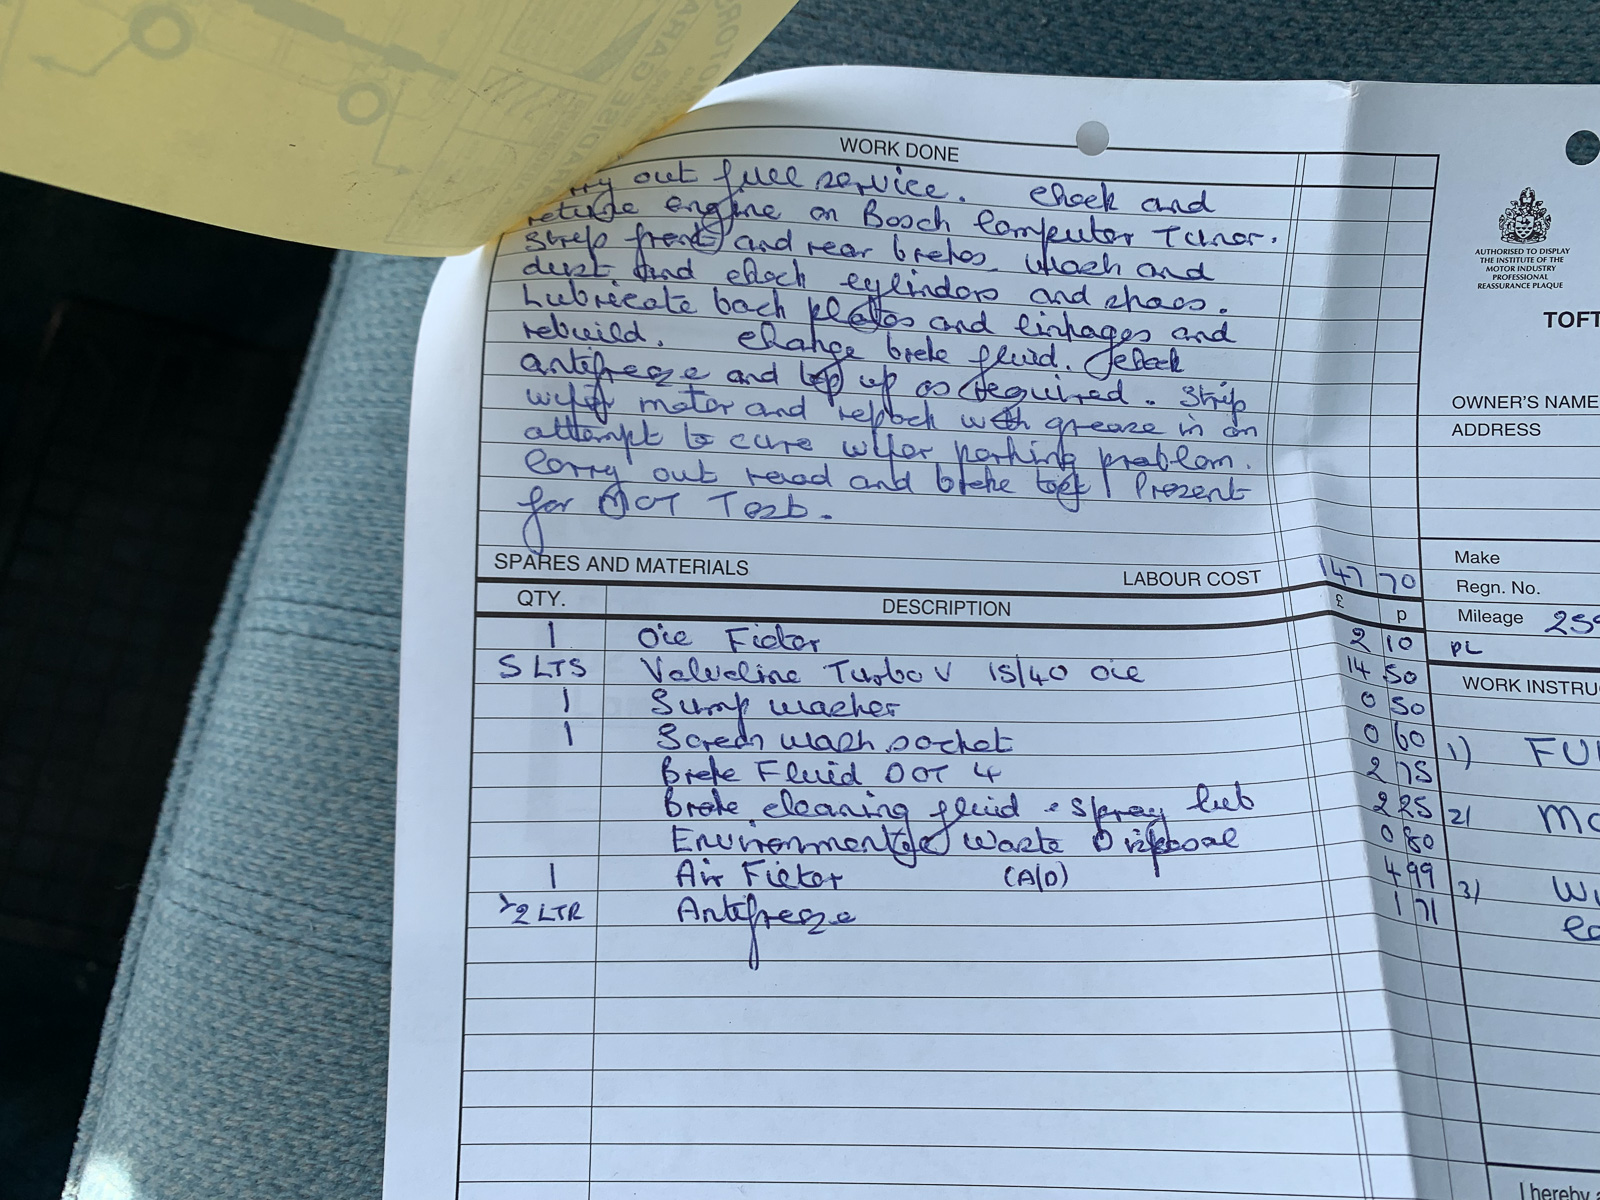 WORK DONE
out full service. Check and
retune engine on Bosch Computer Tuner.
Strip front and rear brakes. Wash and
dust and check cylinders and shoes.
Lubricate back plates and linkages and
rebuild. Change brake fluid. Check
antifreeze and top up as required. Strip
wiper motor and repack with grease in an
attempt to cure wiper parking problem.
Carry out road and brake test. Present
for MOT Test.
SPARES AND MATERIALS LABOUR COST 147 70
QTY. DESCRIPTION £ p
1 Oil Filter 2 10
5 LTS Valvoline Turbo V 15/40 oil 14 50
1 Sump washer 0 50
1 Screen wash sachet 0 60
Brake Fluid DOT 4 2 75
Brake cleaning fluid + spray lub 2 25
Environmental Waste Disposal 0 80
1 Air Filter (A/D) 4 99
1/2 LTR Antifreeze 1 71
AUTHORISED TO DISPLAY
THE INSTITUTE OF THE
MOTOR INDUSTRY
PROFESSIONAL
REASSURANCE PLAQUE
TOFT
OWNER'S NAME
ADDRESS
Make
Regn. No.
Mileage 259
PL
WORK INSTRU
1) FU
2) MO
3) Wi
I hereby a